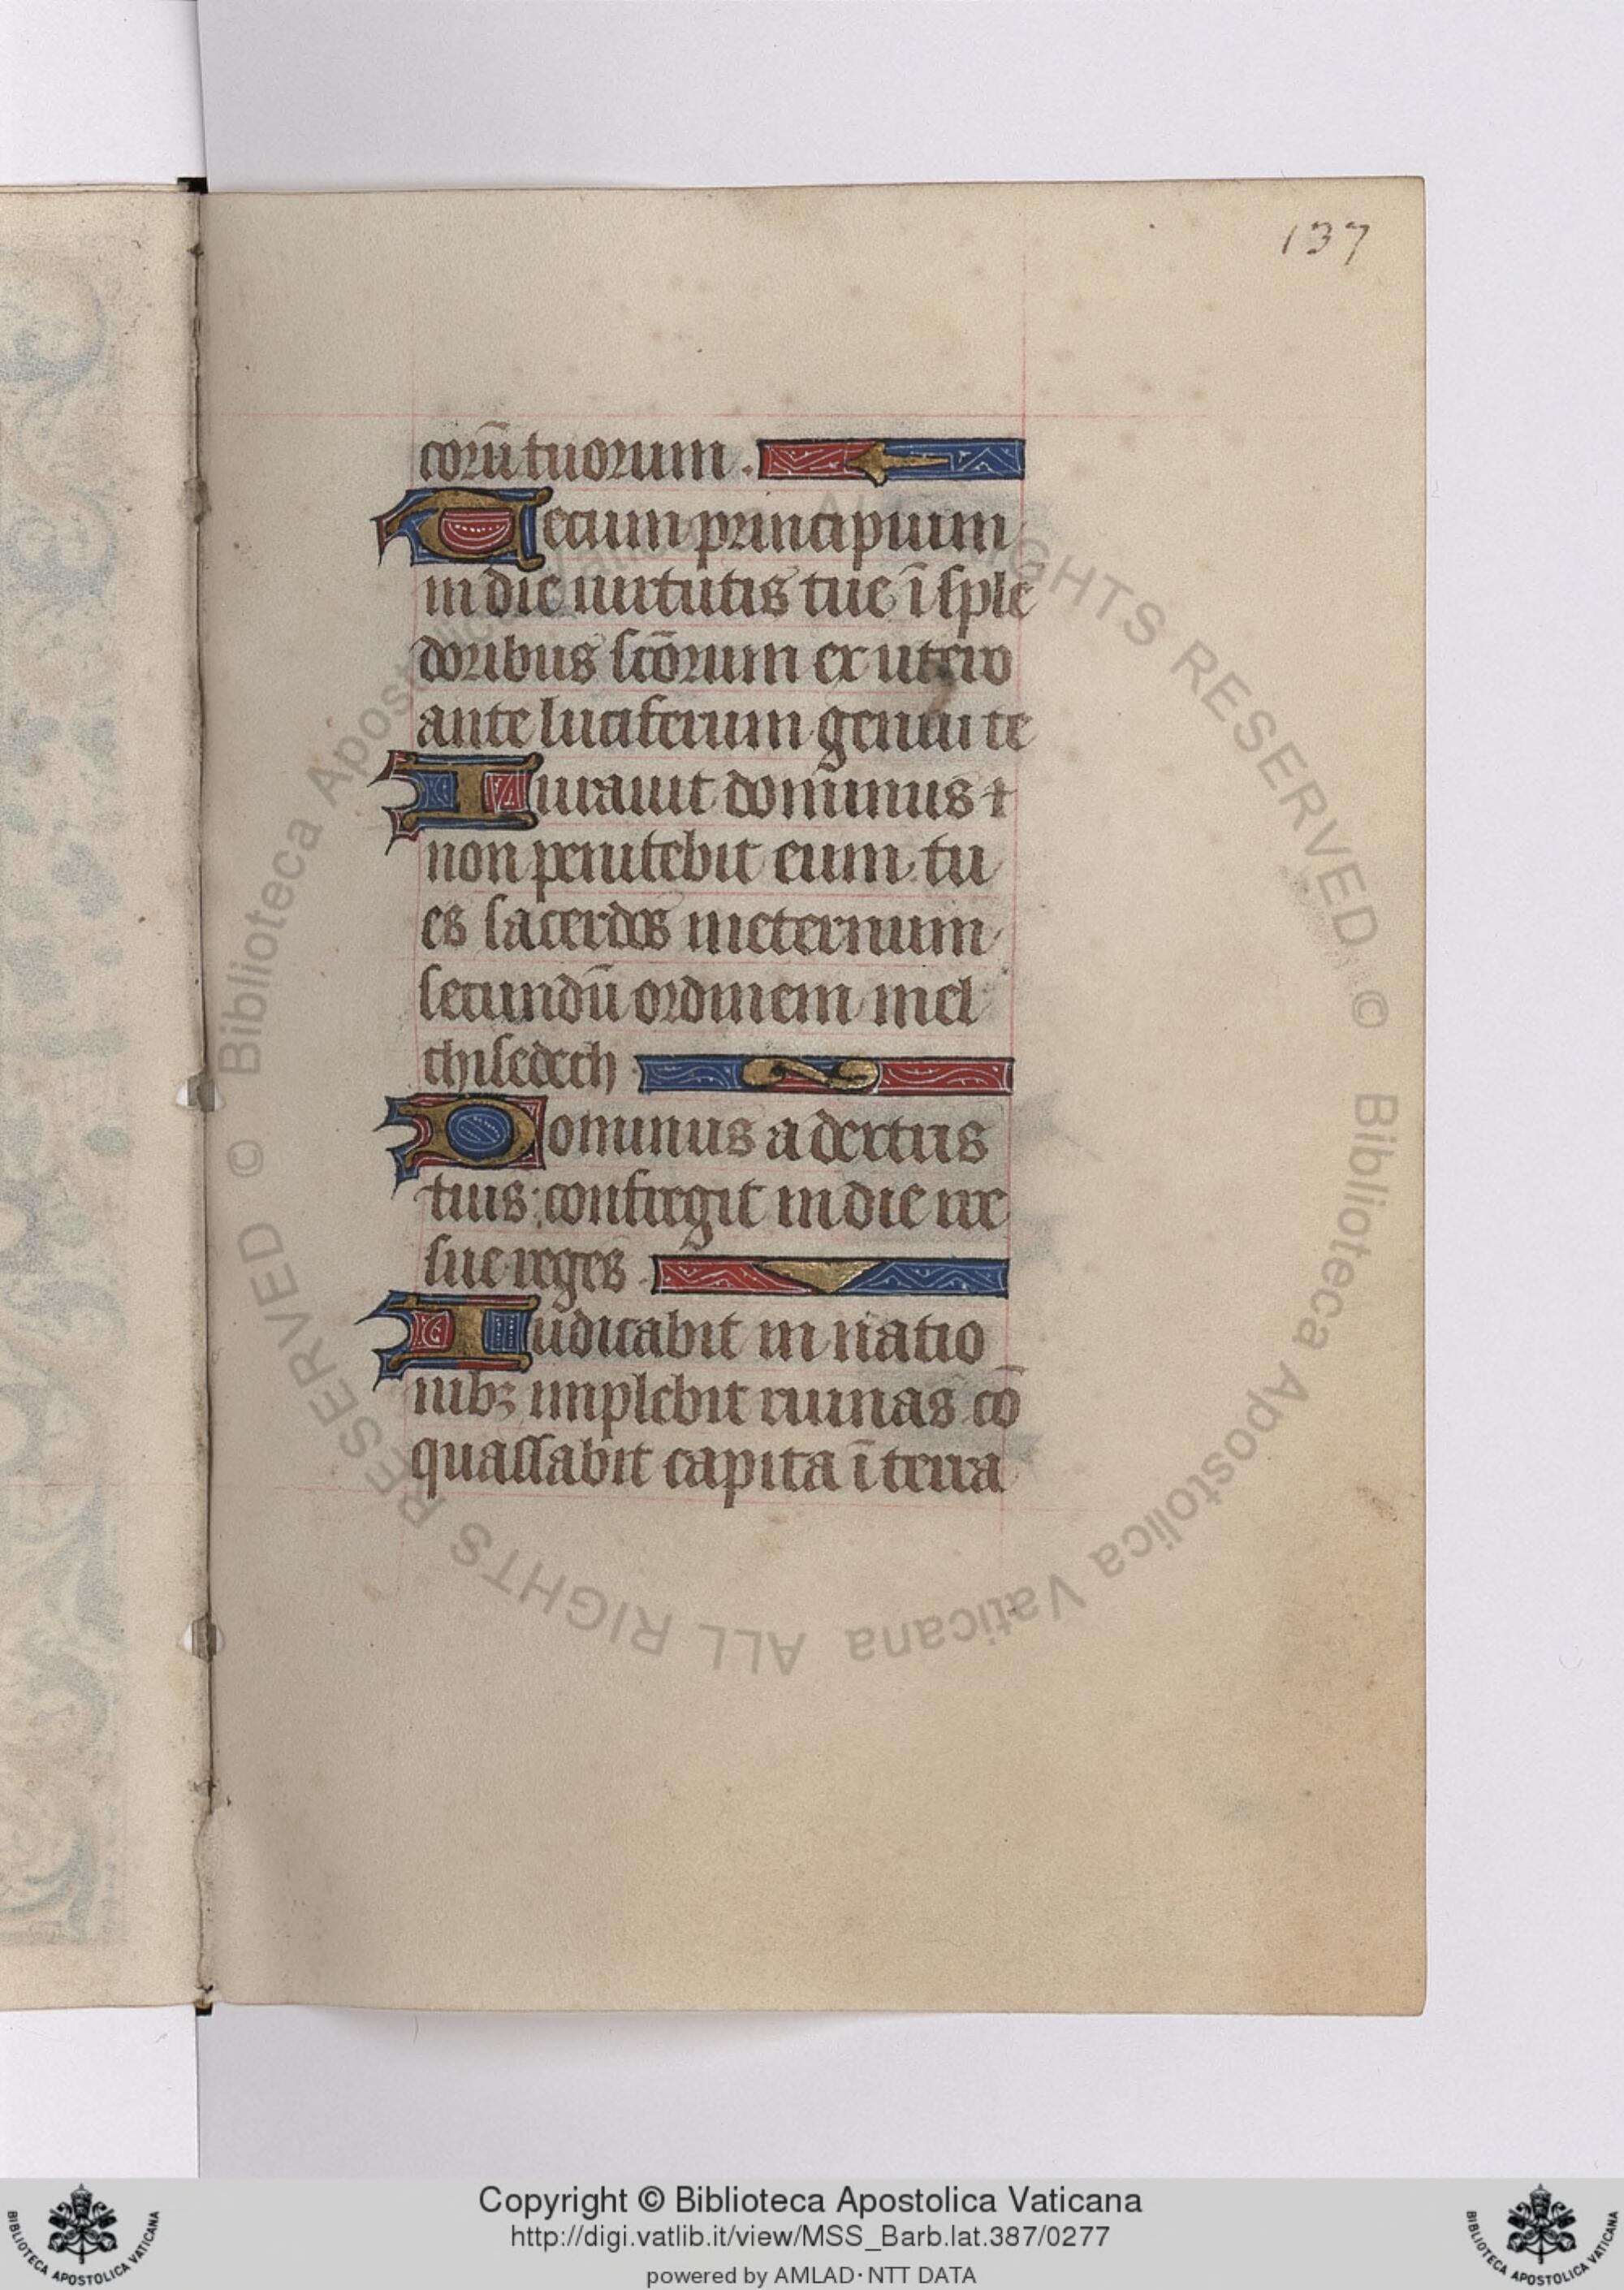 137
corū tuorum .
Tecum principium
in die uirtutis tue ī sple
doribus sc̄orum ex utero
ante luciferum genui te
Iurauit dominus ⁊
non penitebit eum tu
es sacerdos ineternum
secundū ordinem mel
chisedech
Dominus a dextris
tuis : confregit in die ire
sue reges .
Iudicabit in natio
nibꝫ implebit ruinas cō
quassabit capita ī terra
© Biblioteca Apostolica Vaticana ALL RIGHTS RESERVED © Biblioteca Apostolica Vaticana ALL RIGHTS RESERVED
Copyright © Biblioteca Apostolica Vaticana
http://digi.vatlib.it/view/MSS_Barb.lat.387/0277
powered by AMLAD·NTT DATA
BIBLIOTECA APOSTOLICA VATICANA
BIBLIOTECA APOSTOLICA VATICANA